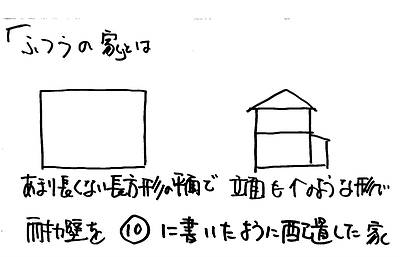 「ふつうの家」とは
あまり長くない長方形の平面で 立面も↑のような形で
耐力壁を ⑩ に書いたように配置した家